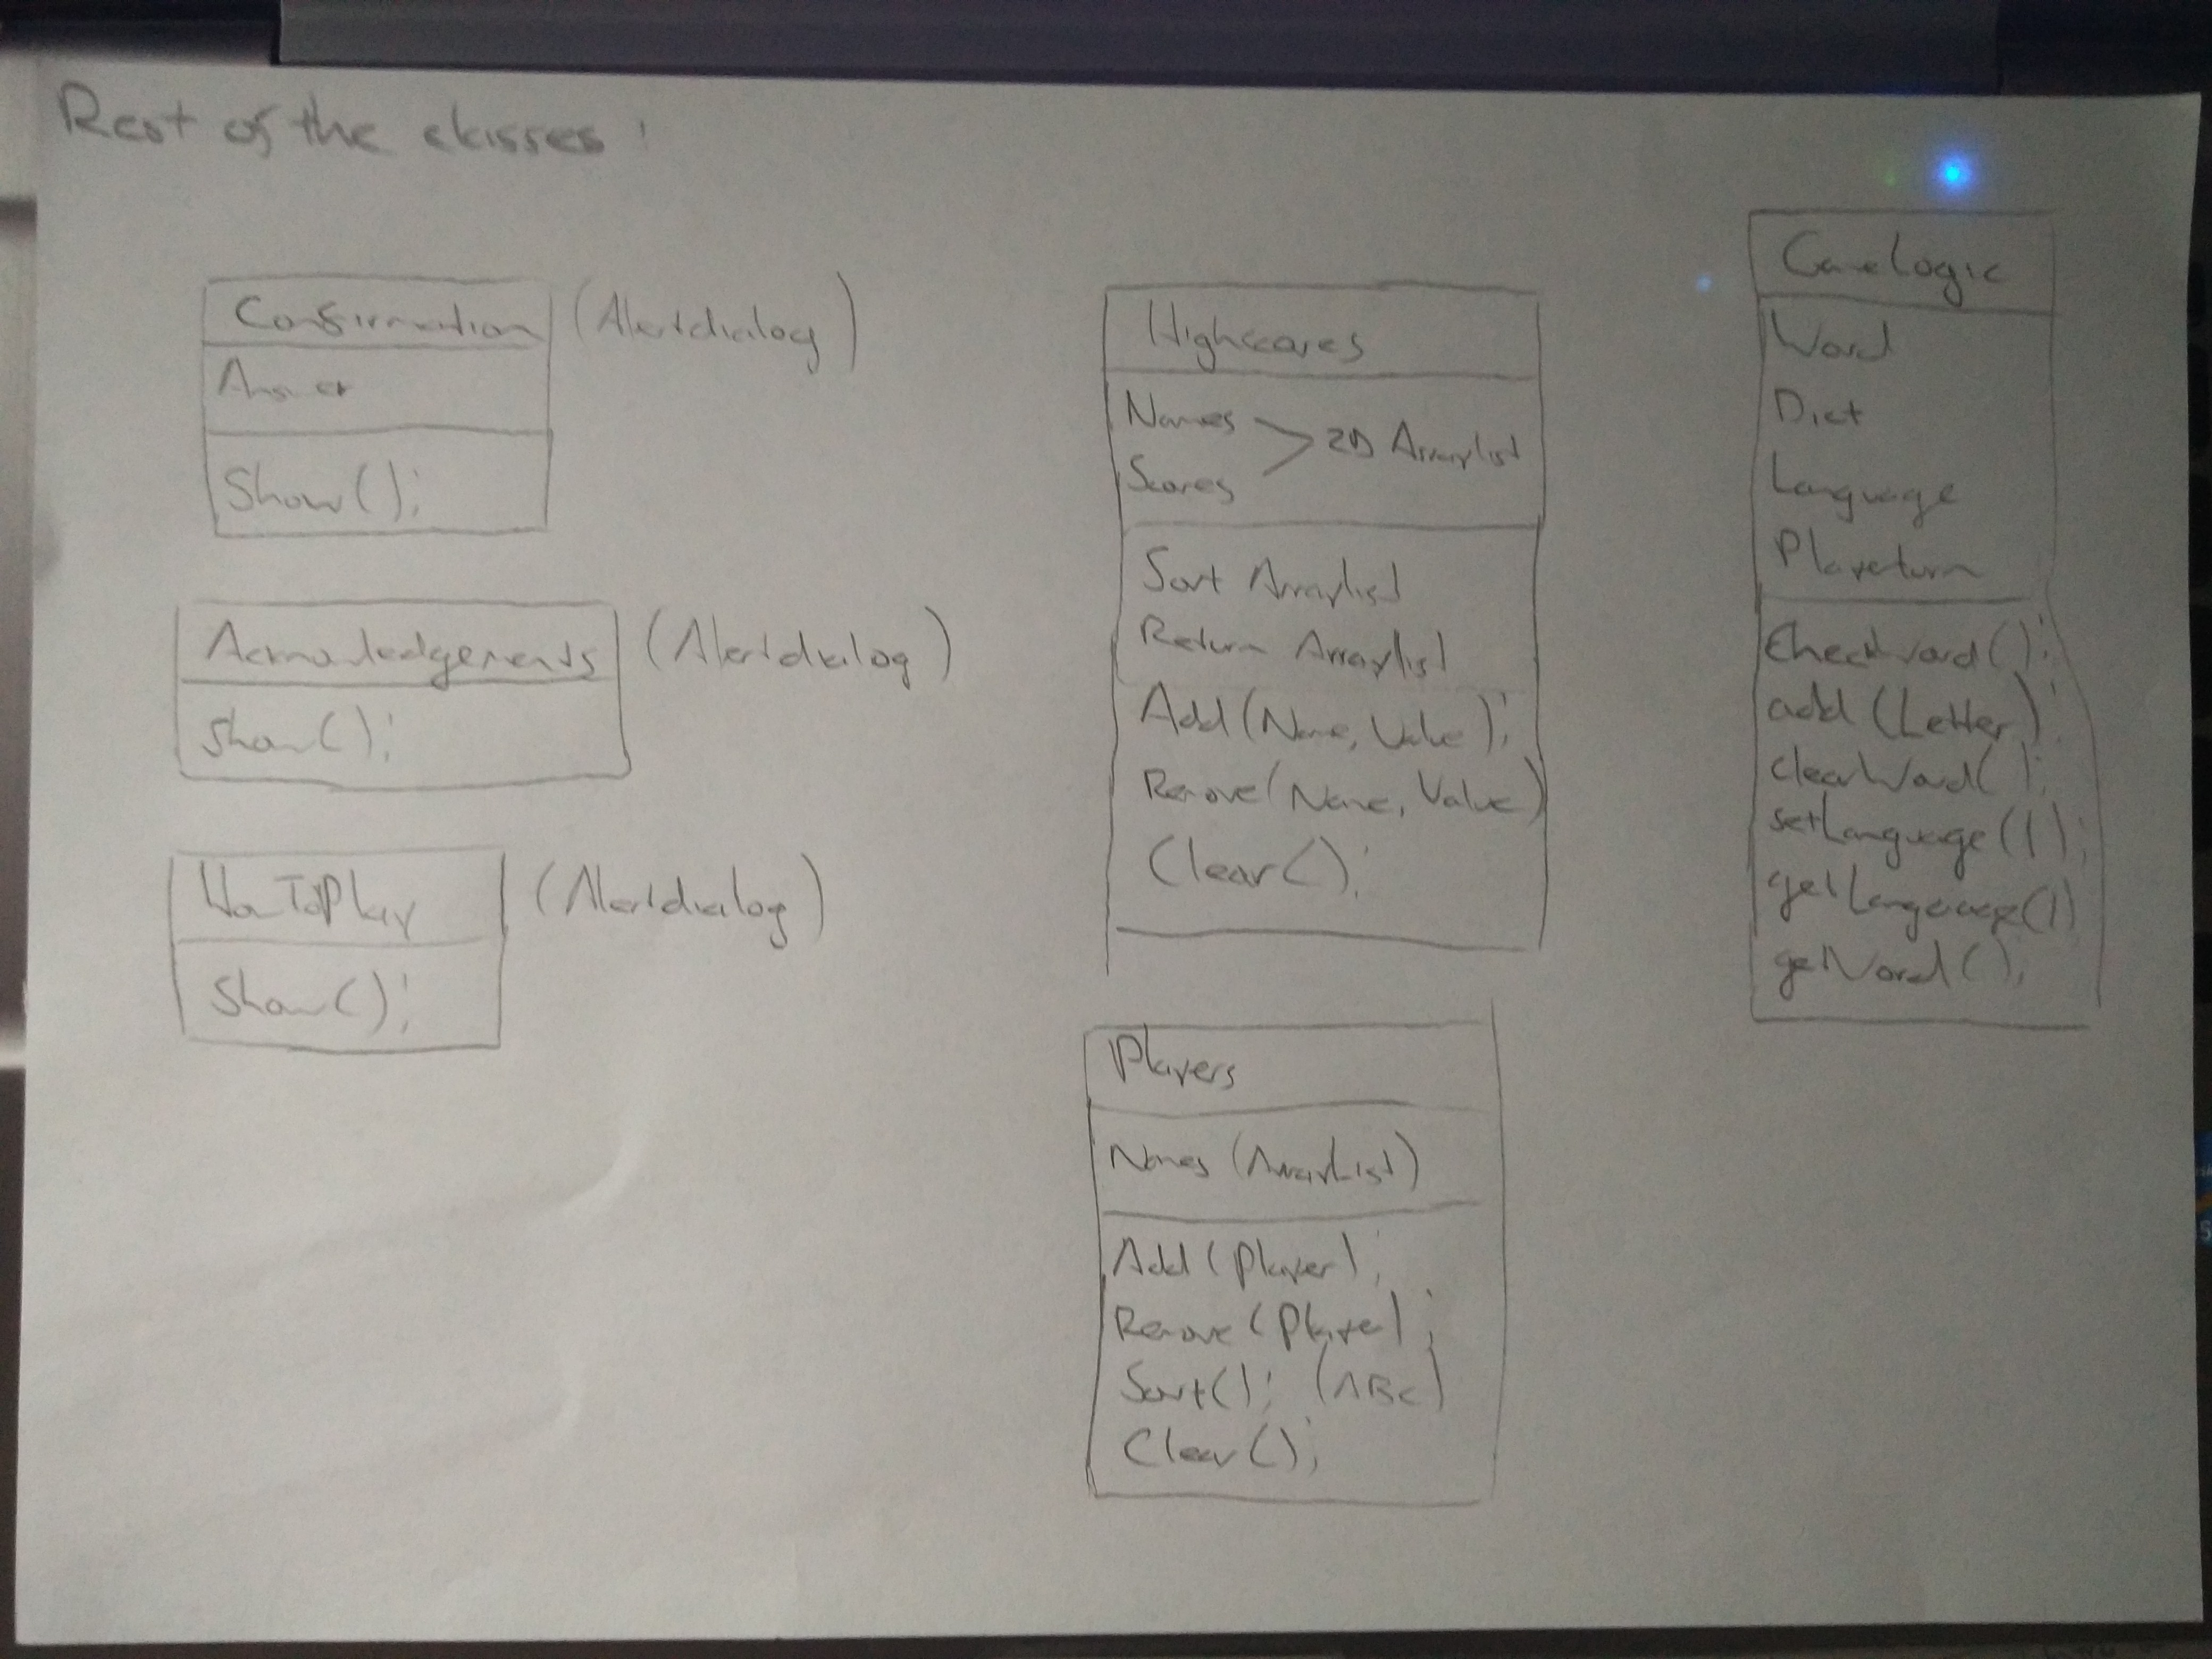 Rest of the classes:
Confirmation (Alertdialog)
Answer
Show();
Acknowledgements (Alertdialog)
Show();
HowToPlay (Alertdialog)
Show();
Highscores
Names
Scores > 2D Arraylist
Sort Arraylist
Return Arraylist
Add(Name, Value);
Remove(Name, Value)
Clear();
Players
Names (ArrayList)
Add(Player);
Remove(Player);
Sort(); (ABC)
Clear();
GameLogic
Word
Dict
Language
Playerturn
CheckWord();
add(Letter);
clearWord();
setLanguage();
getLanguage()
getWord();